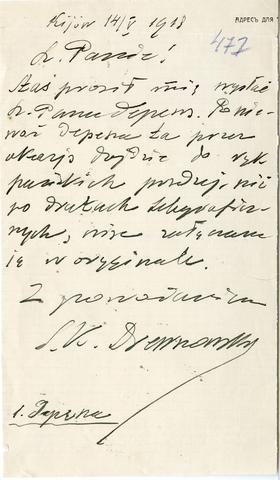 Kijów 14/V 1918
АДРЕСЪ ДЛЯ
477
Sz. Panie!
Staś prosił mię wysłać
Sz. Panu depeszę. Ponie-
waż depesza ta przez
okazję dojdzie do rąk
pańskich prędzej, niż
po drutach telegraficz-
nych, więc załączam
ją w oryginale.
Z poważaniem
1. Depesza